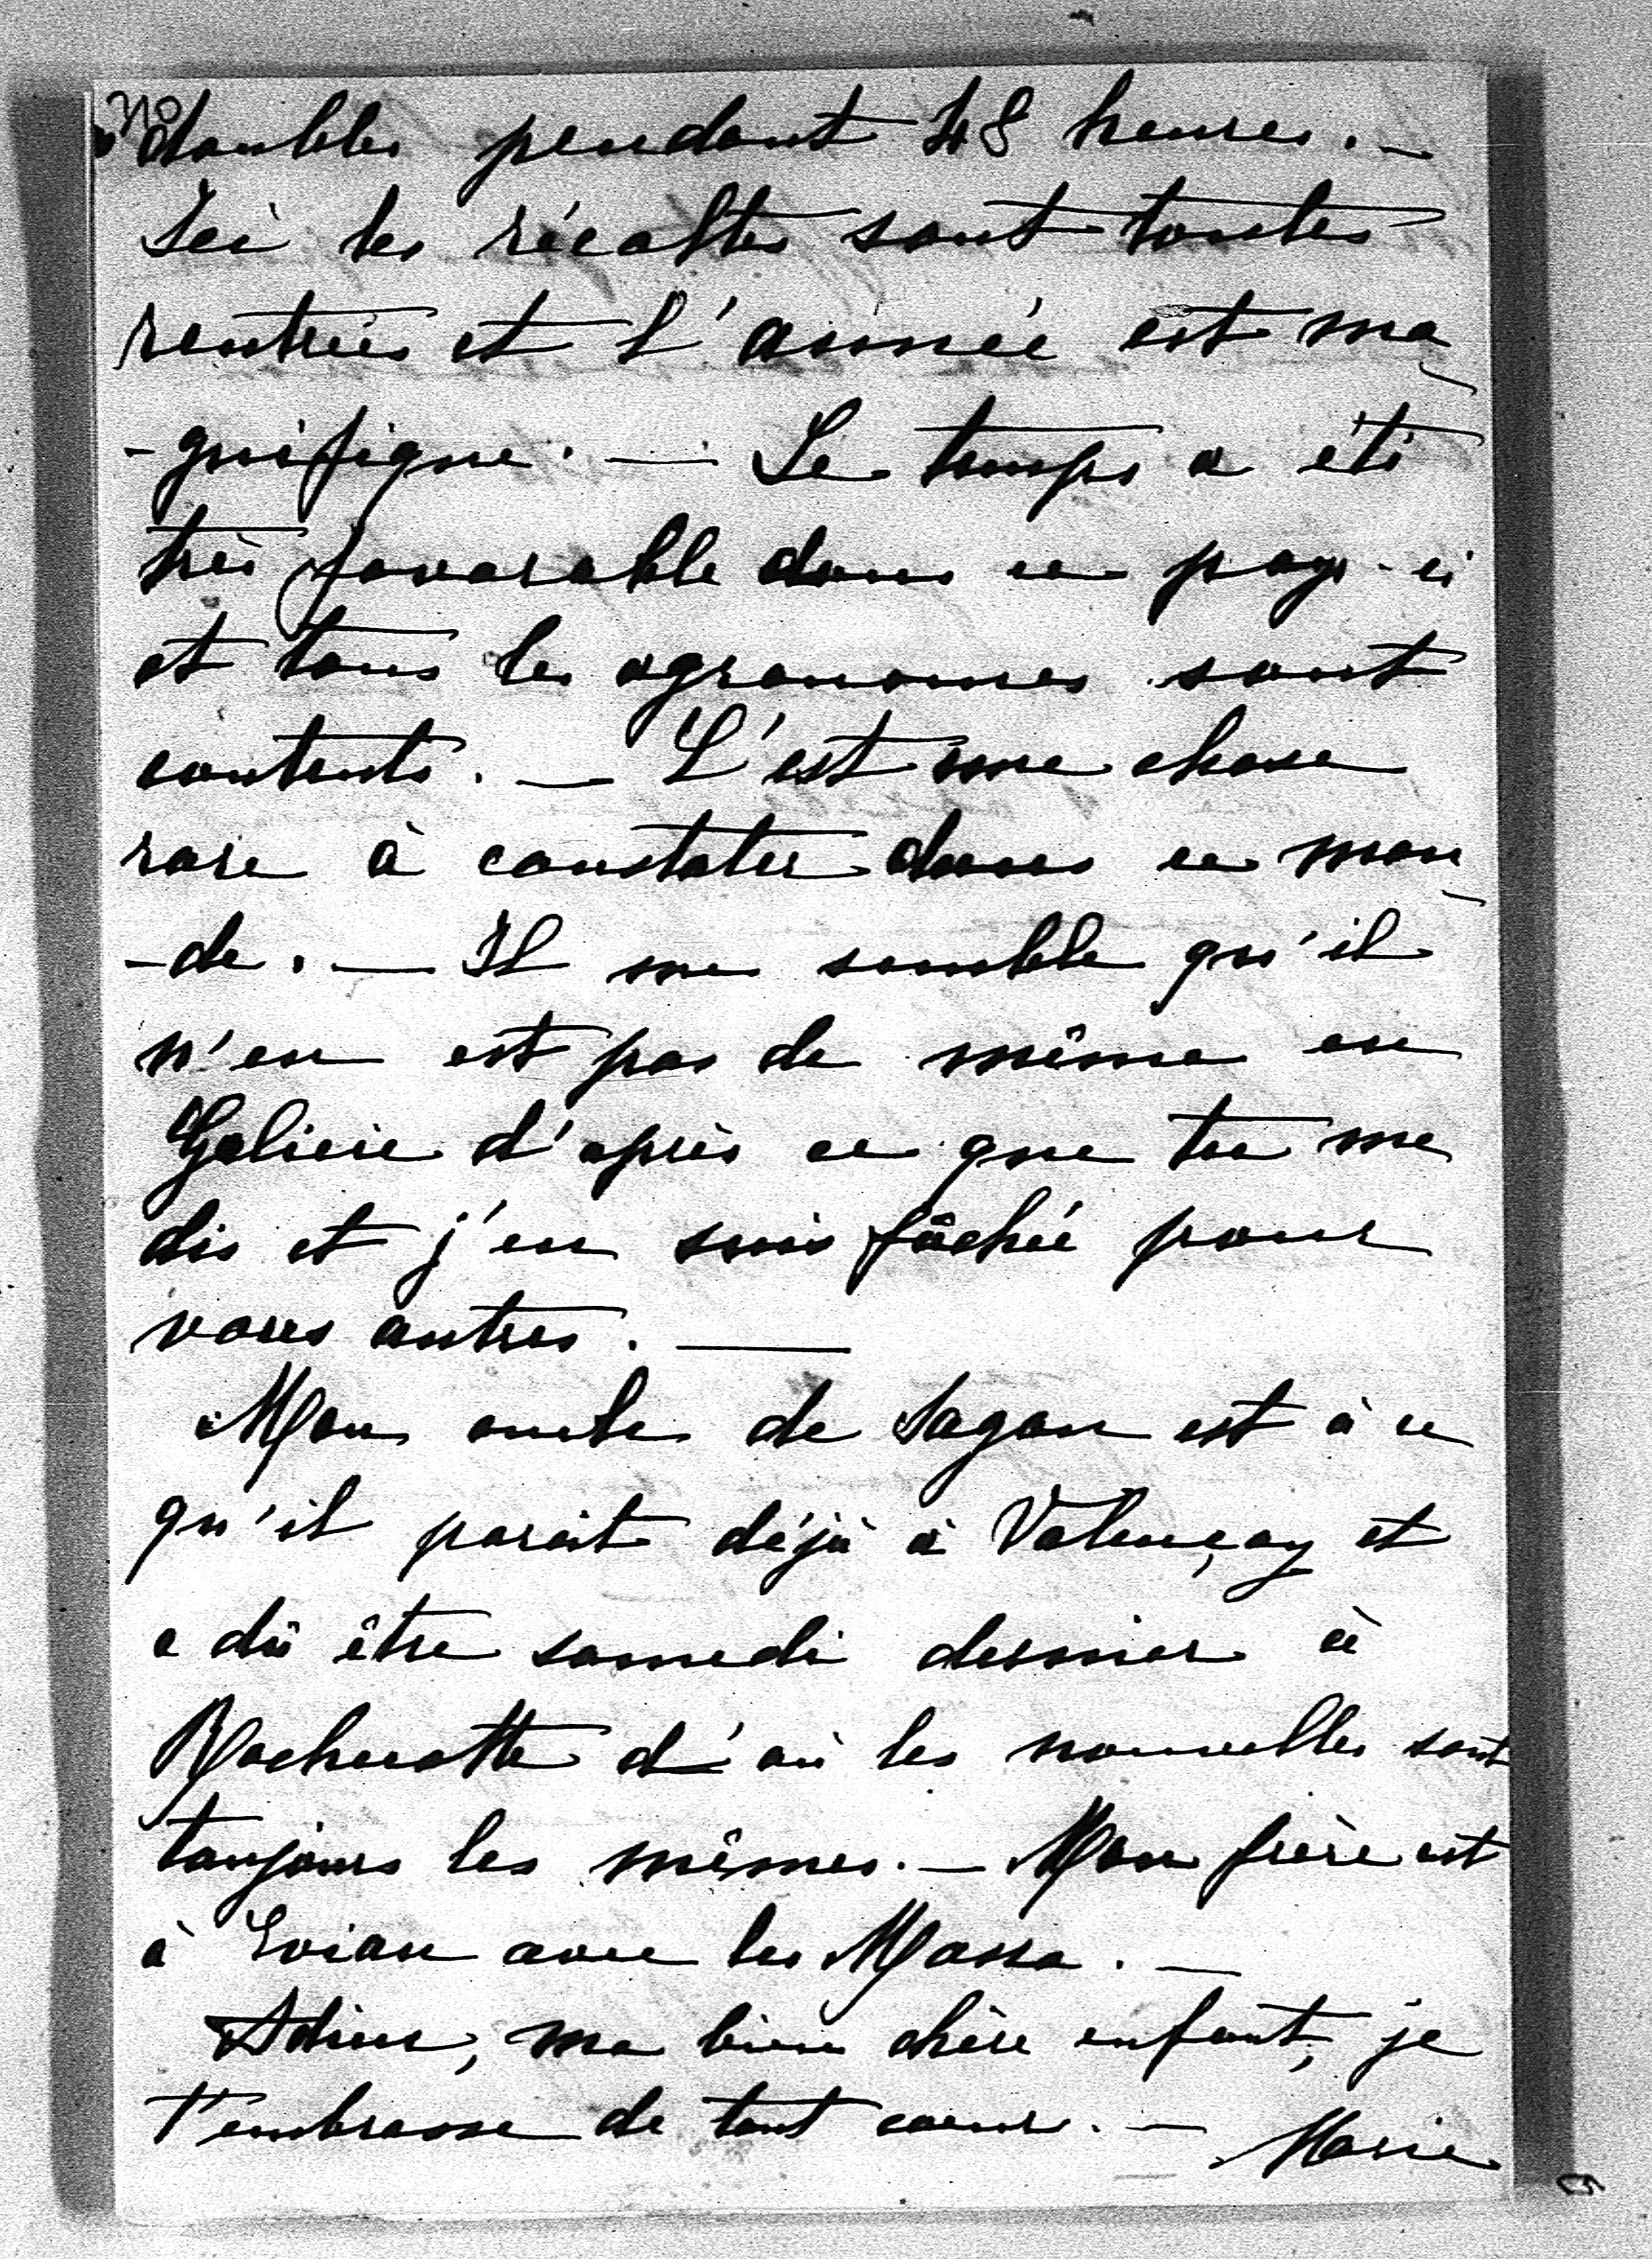 doubles pendant 48 heures. —
Ici les récoltes sont toutes
rentrées et l'année est ma
-gnifique. — Le temps a été
très favorable dans ce pays-ci
et tous les agronomes sont
contents. — C'est une chose
rare à constater dans ce mon
-de. — Il me semble qu'il
n'en est pas de même en
Galicie d'après ce que tu me
dis et j'en suis fâchée pour
vous autres. —
Mon oncle de Sagan est à ce
qu'il parait déjà à Valençay et
a dû être samedi dernier à
Rochecotte d'où les nouvelles sont
toujours les mêmes. — Mon frère est
à Evian avec les Massa. —
Adieu, ma bien chère enfant, je
t'embrasse de tout coeur. — Marie